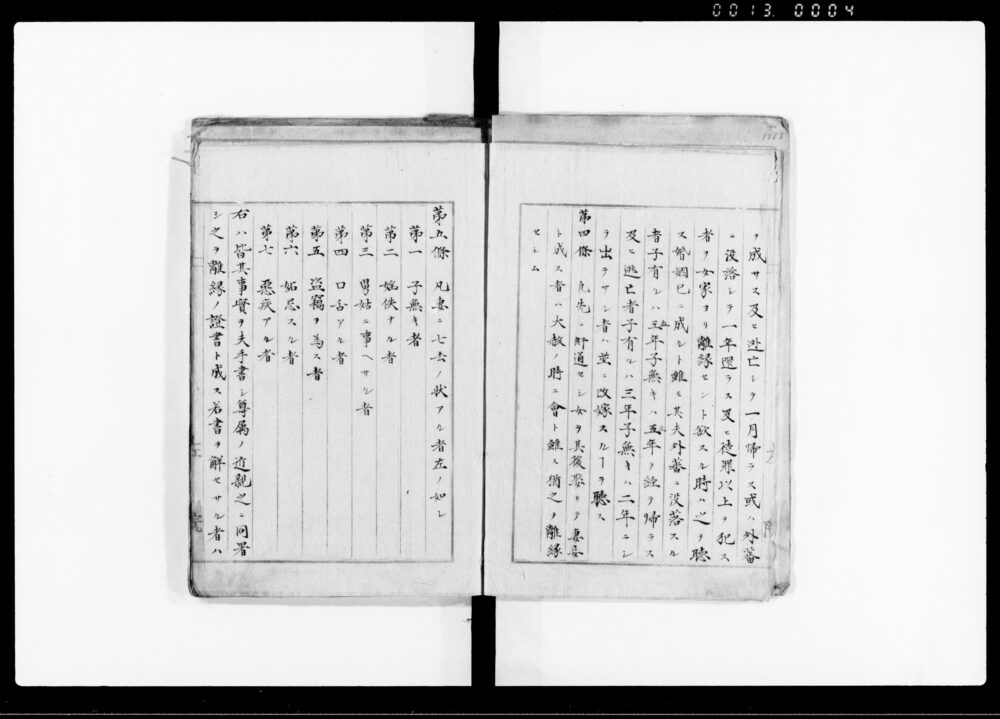 0013 0004
ヲ成サス及ヒ逃亡シテ一月帰ラス或ハ外蕃
ニ没落シテ一年還ラス及ヒ徒罪以上ヲ犯ス
者ヲ女家ヨリ離縁セント欲スル時ハ之ヲ聴
ス婚姻已ニ成ルト雖モ其夫外蕃ニ没落スル
者子有レハ五年子無キハ三年ヲ経テ帰ラス
及ヒ逃亡者子有ルハ三年子無キハ二年ニシ
テ出テサル者ハ並ニ改嫁スルヿヲ聴ス
第四條 凡先ニ奸通セシ女ヲ其後娶リテ妻妾
ト成ス者ハ大赦ノ時ニ會ト雖モ猶之ヲ離縁
セシム
第五條 凡妻ニ七去ノ状アル者左ノ如シ
第一 子無キ者
第二 婬佚ナル者
第三 舅姑ニ事ヘサル者
第四 口舌アル者
第五 盗竊ヲ為ス者
第六 妬忌スル者
第七 悪疾アル者
右ハ皆其事實ヲ夫手書シ尊属ノ近親之ニ同署
シ之ヲ離縁ノ證書ト成ス若書ヲ解セサル者ハ